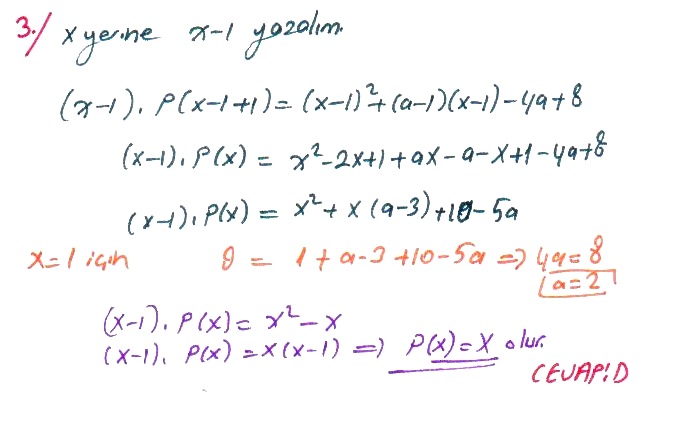 3./ x yerine x-1 yazalım.
(x-1). P(x-1+1) = (x-1)²+(a-1)(x-1)-4a+8
(x-1). P(x) = x²-2x+1+ax-a-x+1-4a+8
(x-1). P(x) = x²+x(a-3)+10-5a
x=1 için 0 = 1+a-3+10-5a => 4a=8
a=2
(x-1). P(x) = x²-x
(x-1). P(x) = x(x-1) => P(x)=x olur.
CEVAP: D